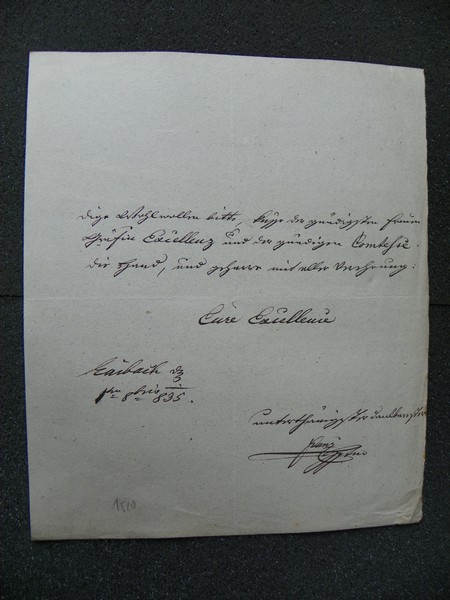 diges Wohlwollen bitte, küsse der gnädigsten Frauen
Gräfin Excellenz und der gnädigen Comtesse
die Hand, und geharre mit aller Verehrung:
Eure Excellence
Laibach
8bris 835.
unterthänigster
Franz
1510